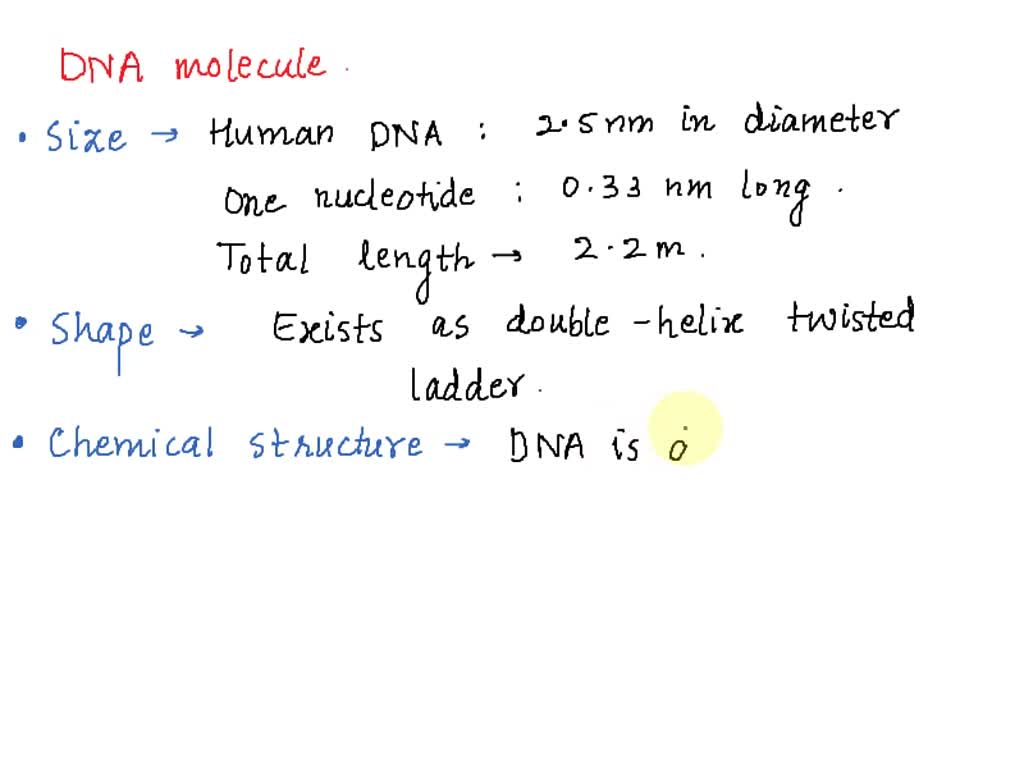 DNA molecule.
• Size → Human DNA : 2.5 nm in diameter
One nucleotide : 0.33 nm long.
Total length → 2.2 m.
• Shape → Exists as double-helix twisted
ladder.
• Chemical structure → DNA is